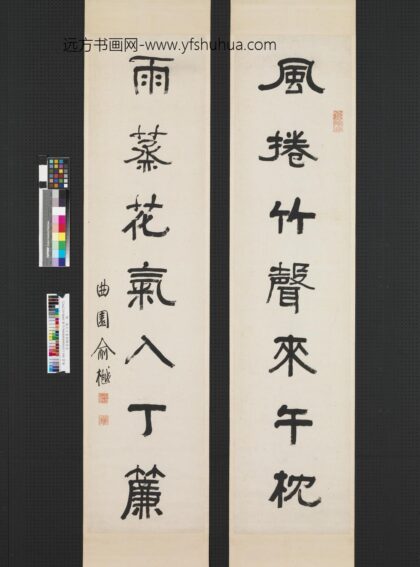 远方书画网-www.yfshuhua.com
風捲竹聲來午枕
雨蒸花氣入丁簾
曲園俞樾